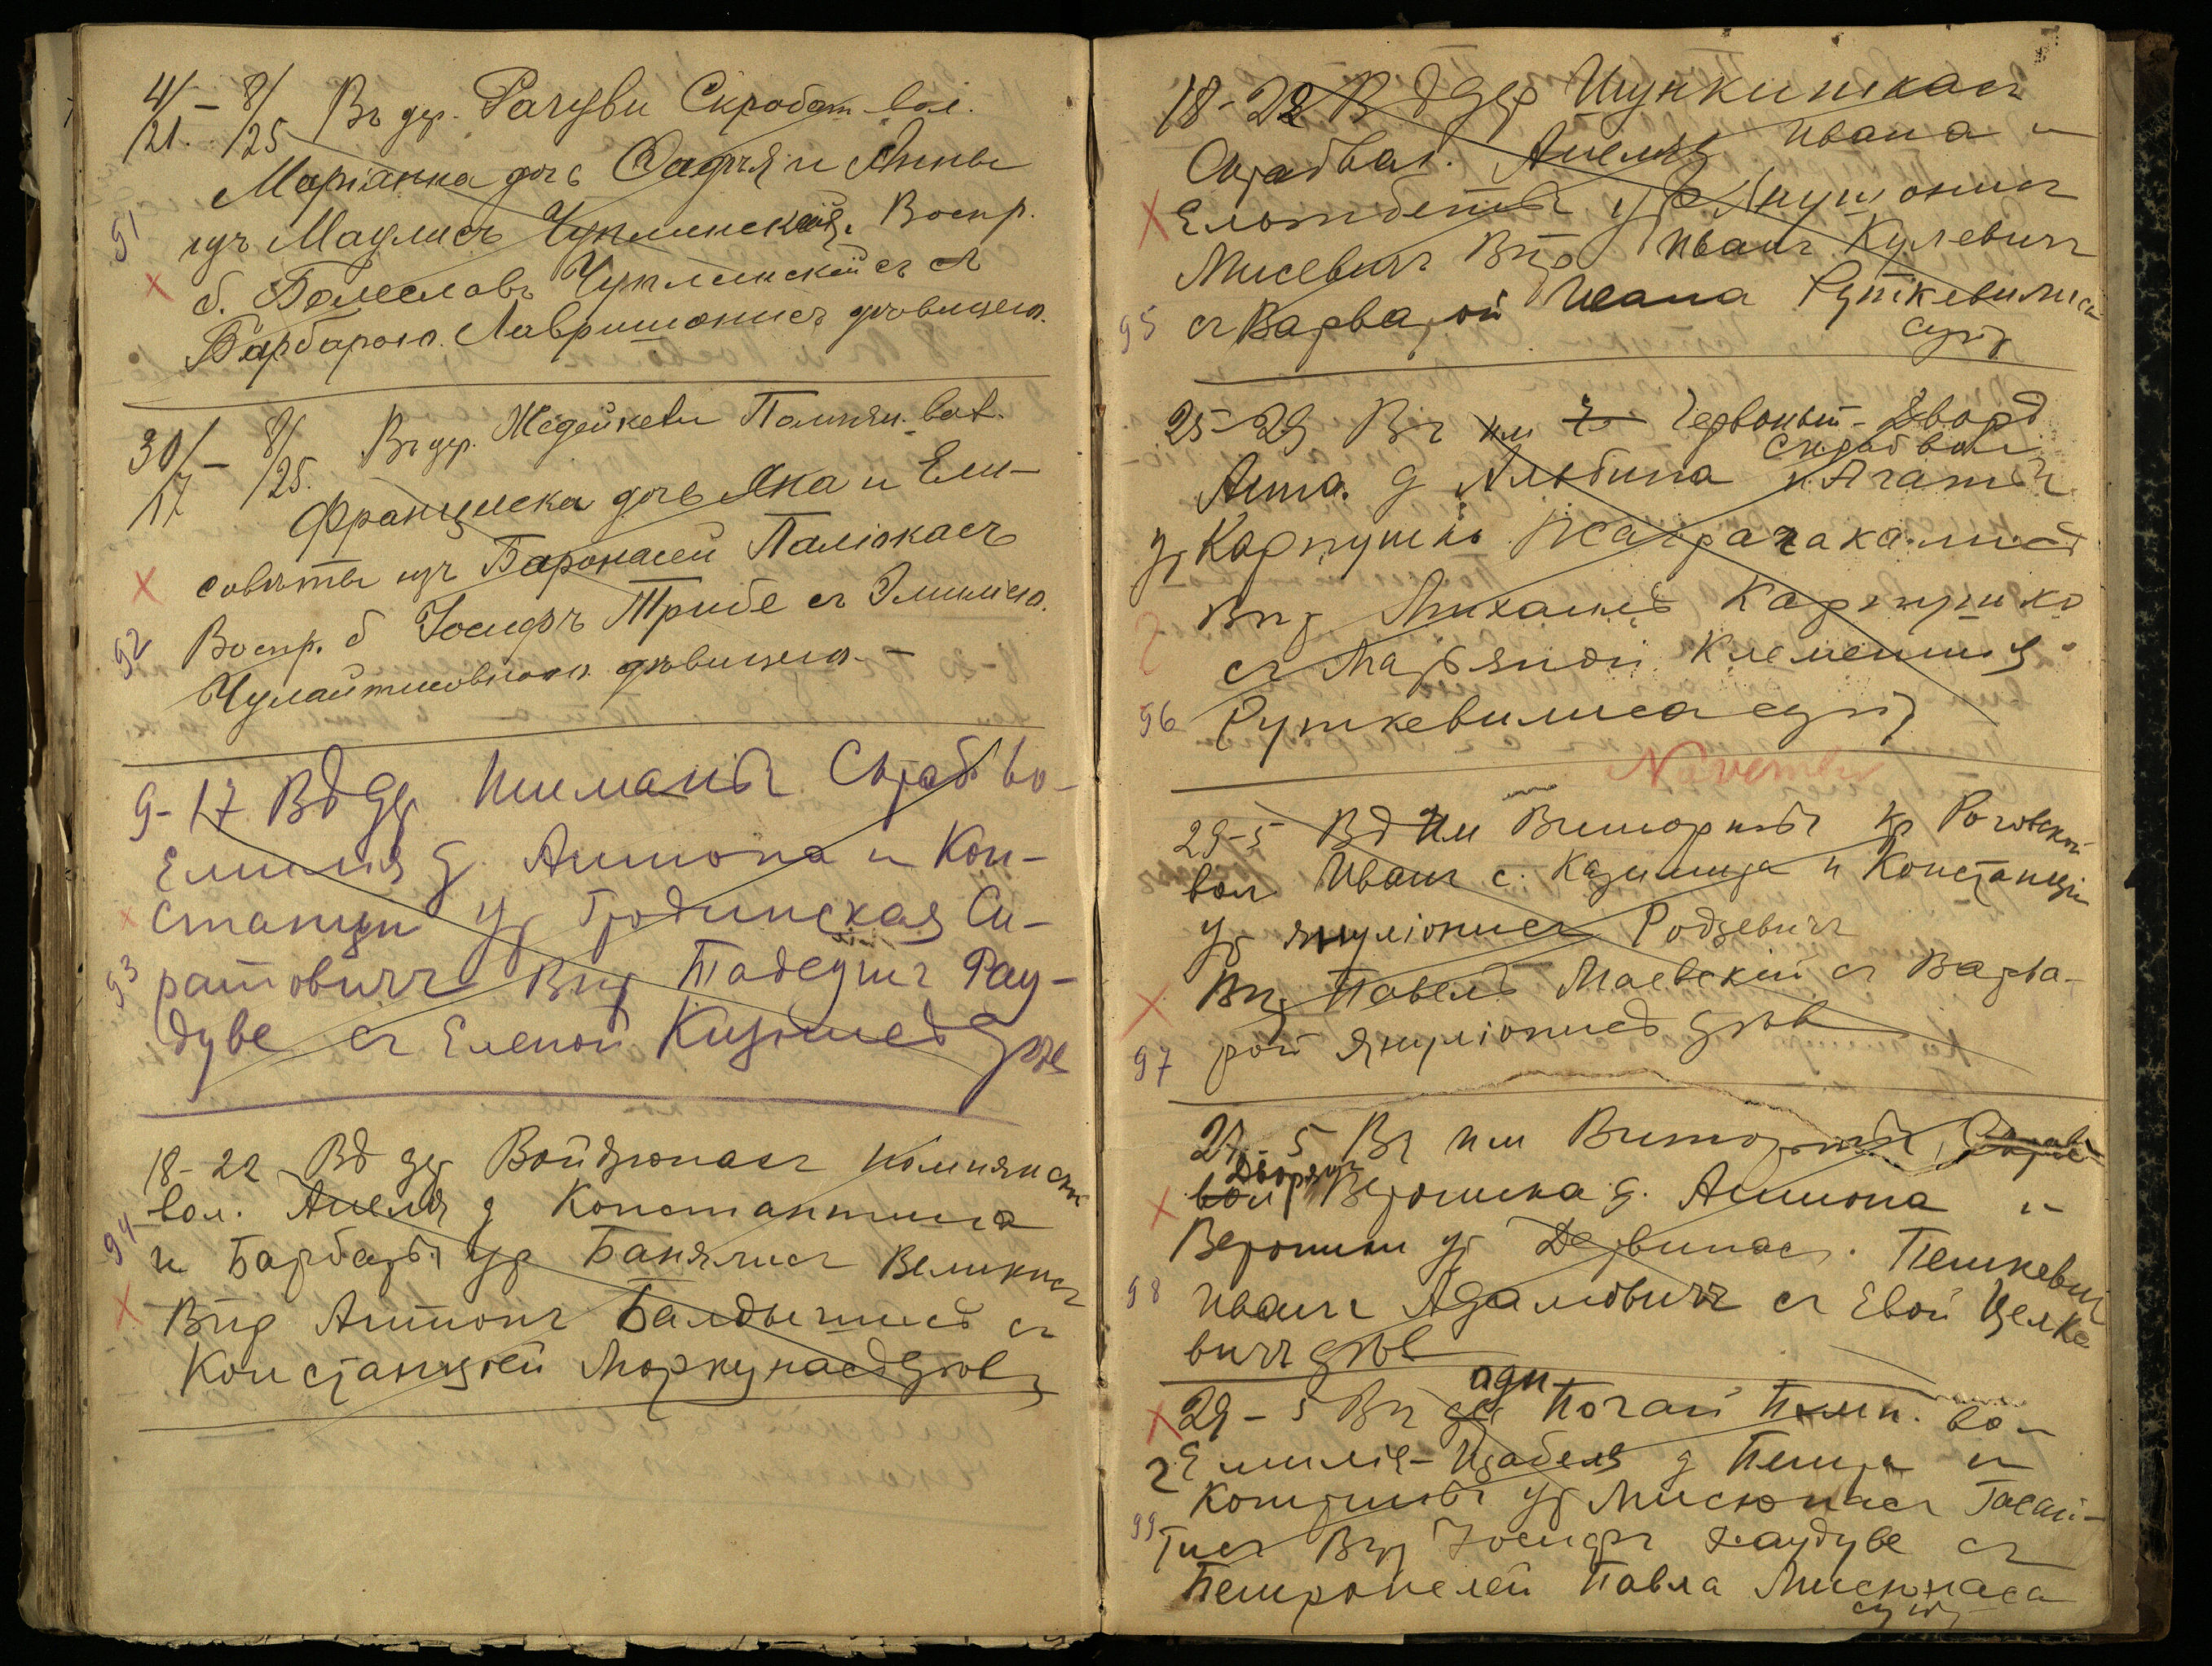 4/21. – 8/25 Въ дер. Рагуви Скробот. вол.
Маріанна дочь Фадѣя и Анны
изъ Мацлисъ Чуплинскій. Воспр.
б. Болеславъ Чуплинскій съ
Барбарою Лавришонисъ дѣвицею.
91
30/17 – 8/25. Въ дер. Жедейкели Помпян. вол.
Франциска дочь Яна и Ели-
саветы изъ Баронасей Паліокасъ
Воспр. б Іосифъ Трибе съ Эмиліею
Чулайтисовною дѣвицею. –
92
9-17 Въ дер Шиманы Скроб во-
Емилія д Антона и Кон-
станціи ур Гродинская Си-
ратовичъ Впр Тадеушъ Рау-
дуве съ Еленой Кизюлисъ
93
18-22 Въ дер Войдзюнасъ Помпянск
вол. Анеля д Константина
и Барбары ур Банялисъ Великисъ
Впр Антонъ Балдышисъ съ
Констанціей Моркунасъ дѣв
94
18-22 В дер Шункишкасъ
Скроб вол. Анеля Ивана и
Елизабеты ур Янушонисъ
Мисевичъ Впр Иванъ Кулевичъ
съ Варварой Ивана Руткевилиса
супр
95
25-29 Въ им Червоный-Дворъ
Скроб вол
Анна д Альбина и Агаты
ур Карпушко
Впр Михаилъ Карпушко
съ Марьяной Клеменшия
Руткевилиса супр
96
November
29-5 Въ Им Виторышъ Роговской
вол Иванъ с. Казимира и Констанціи
ур Януліонисъ Родзевичъ
Впр Павелъ Маевскій съ Варва-
рой Януліонисъ дѣв
97
27-5 Въ им Виторышъ
Дворяне
вол Вероника д. Антона и
Вероники ур Дервинасъ. Пешкевичъ
Иванъ Адамовичъ съ Евой Целке
вичъ дѣв
98
одн
29-5 Въ Почай Помп. во-
Емилія-Изабеля д Петра и
ур Мисюнасъ Гасай-
тисъ Впр Іосифъ Раудуве съ
Петронелей Павла Мисюнаса
супр
99